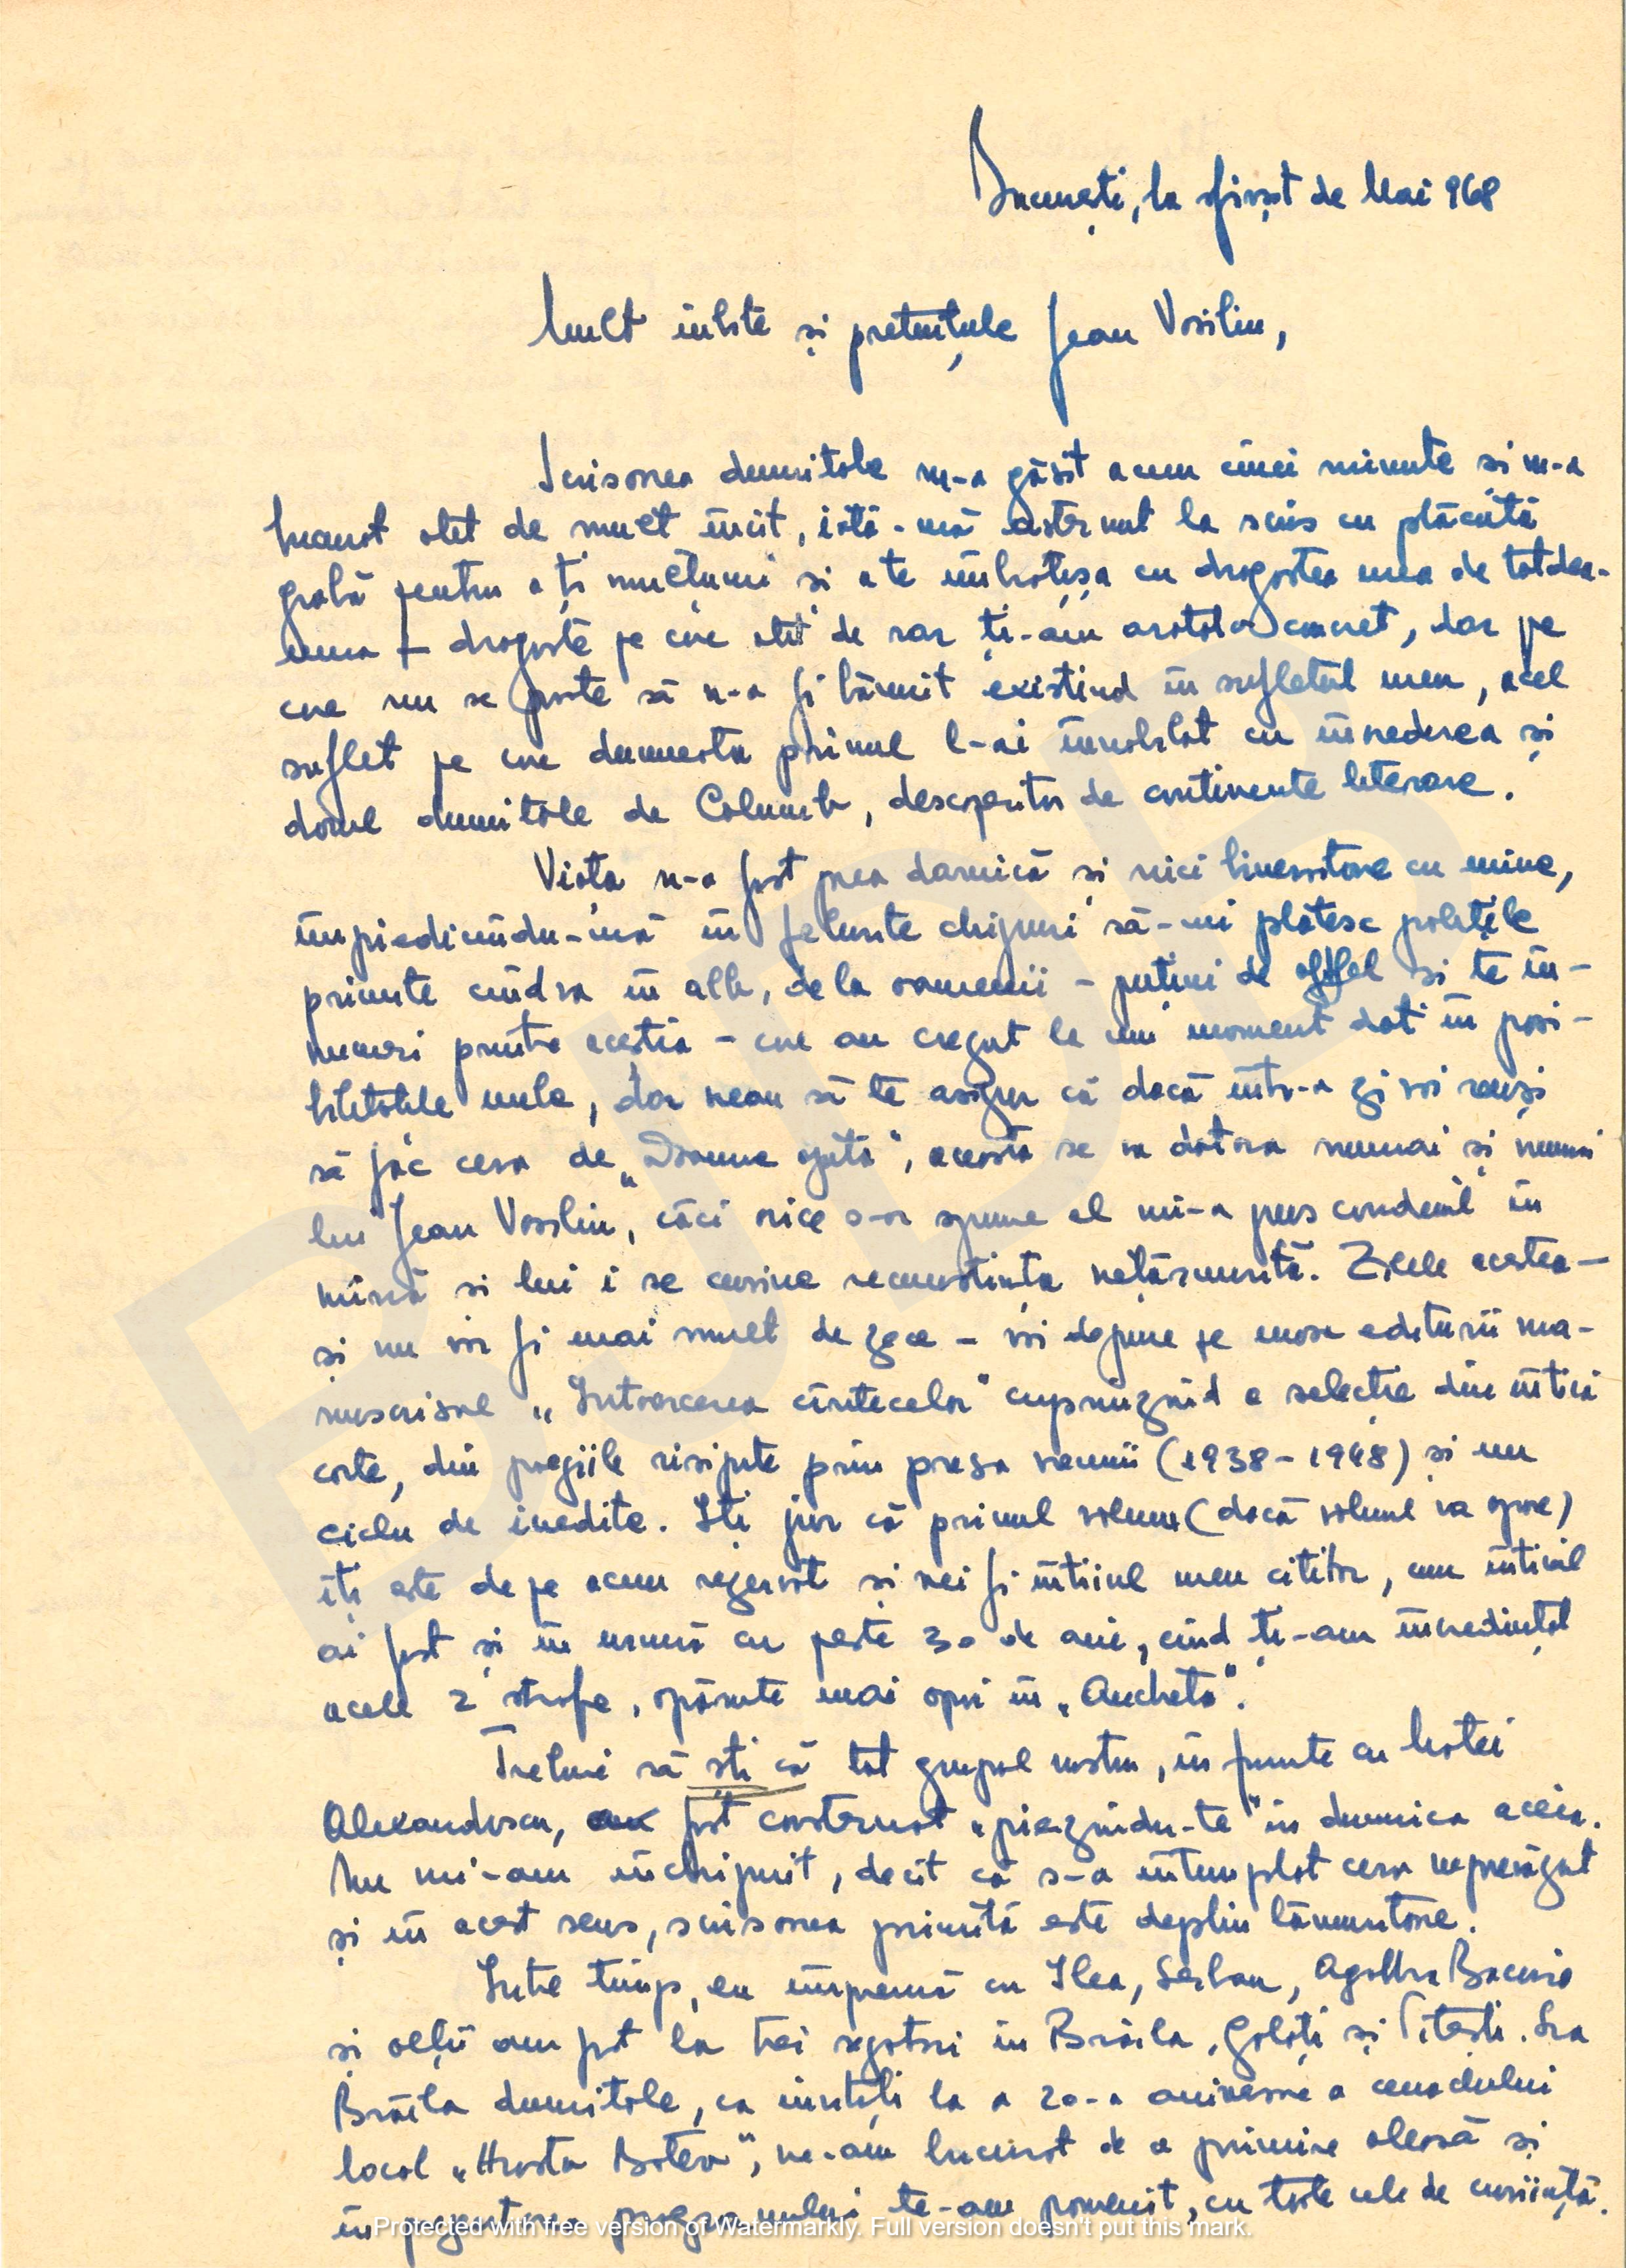 București, la sfîrșit de Mai 968
Mult iubite și prețuitule Jean Vasiliu,
Scrisoarea dumitale m-a găsit acum cinci minute și m-a
bucurat atît de mult încît, iată-mă așternut la scris cu plăcută
grabă pentru a-ți mulțumi și a te îmbrățișa cu dragostea mea de totdea-
una – dragoste pe care atît de rar ți-am arătat-o concret, dar pe
care nu se poate să n-o fi bănuit existînd în sufletul meu, acel
suflet pe care dumneata primul l-ai înnobilat cu încrederea și
dorul dumitale de Columb, descoperitor de continente literare.
Viața n-a fost prea darnică și nici binevoitoare cu mine,
împiedicîndu-mă în felurite chipuri să-mi plătesc polițele
primite cîndva în alb, de la oamenii – puțini de altfel și te în-
numeri printre aceștia – care au crezut la un moment dat în posi-
bilitățile mele, dar vreau să te asigur că dacă într-o zi voi reuși
să fac ceva de „Doamne ajută", aceasta se va datora numai și numai
lui Jean Vasiliu, căci orice s-ar spune el mi-a pus condeiul în
mînă și lui i se cuvine recunoștința nețărmurită. Zilele acestea –
și nu vor fi mai mult de zece – voi depune pe masa editurii ma-
nuscrisul „Întoarcerea cîntecelor" cuprinzînd o selecție din întîia
carte, din poeziile risipite prin presa vremii (1938-1948) și un
ciclu de inedite. Îți jur că primul volum (dacă volumul va apare)
îți este de pe acum rezervat și vei fi întîiul meu cititor, cum întîiul
ai fost și în urmă cu peste 30 de ani, cînd ți-am încredințat
acele 2 strofe, apărute mai apoi în „Ancheta".
Trebuie să știi că tot grupul nostru, în frunte cu Matei
Alexandrescu, a fost consternat „pierzîndu-te" în dumineca aceia.
Nu mi-am închipuit, decît că s-a întîmplat ceva neprevăzut
și în acest sens, scrisoarea primită este deplin lămuritoare.
Între timp, eu împreună cu Ilea, Șerban, Agatha Bacovia
și alții am fost la trei șezători în Brăila, Galați și Pitești. La
Brăila dumitale, ca invitați la a 20-a aniversare a cenaclului
local „Hristo Botev", ne-am bucurat de o primire aleasă și
în pregătirea programului te-am pomenit, cu toate cele de cuviință.
Protected with free version of Watermarkly. Full version doesn't put this mark.
BJDB